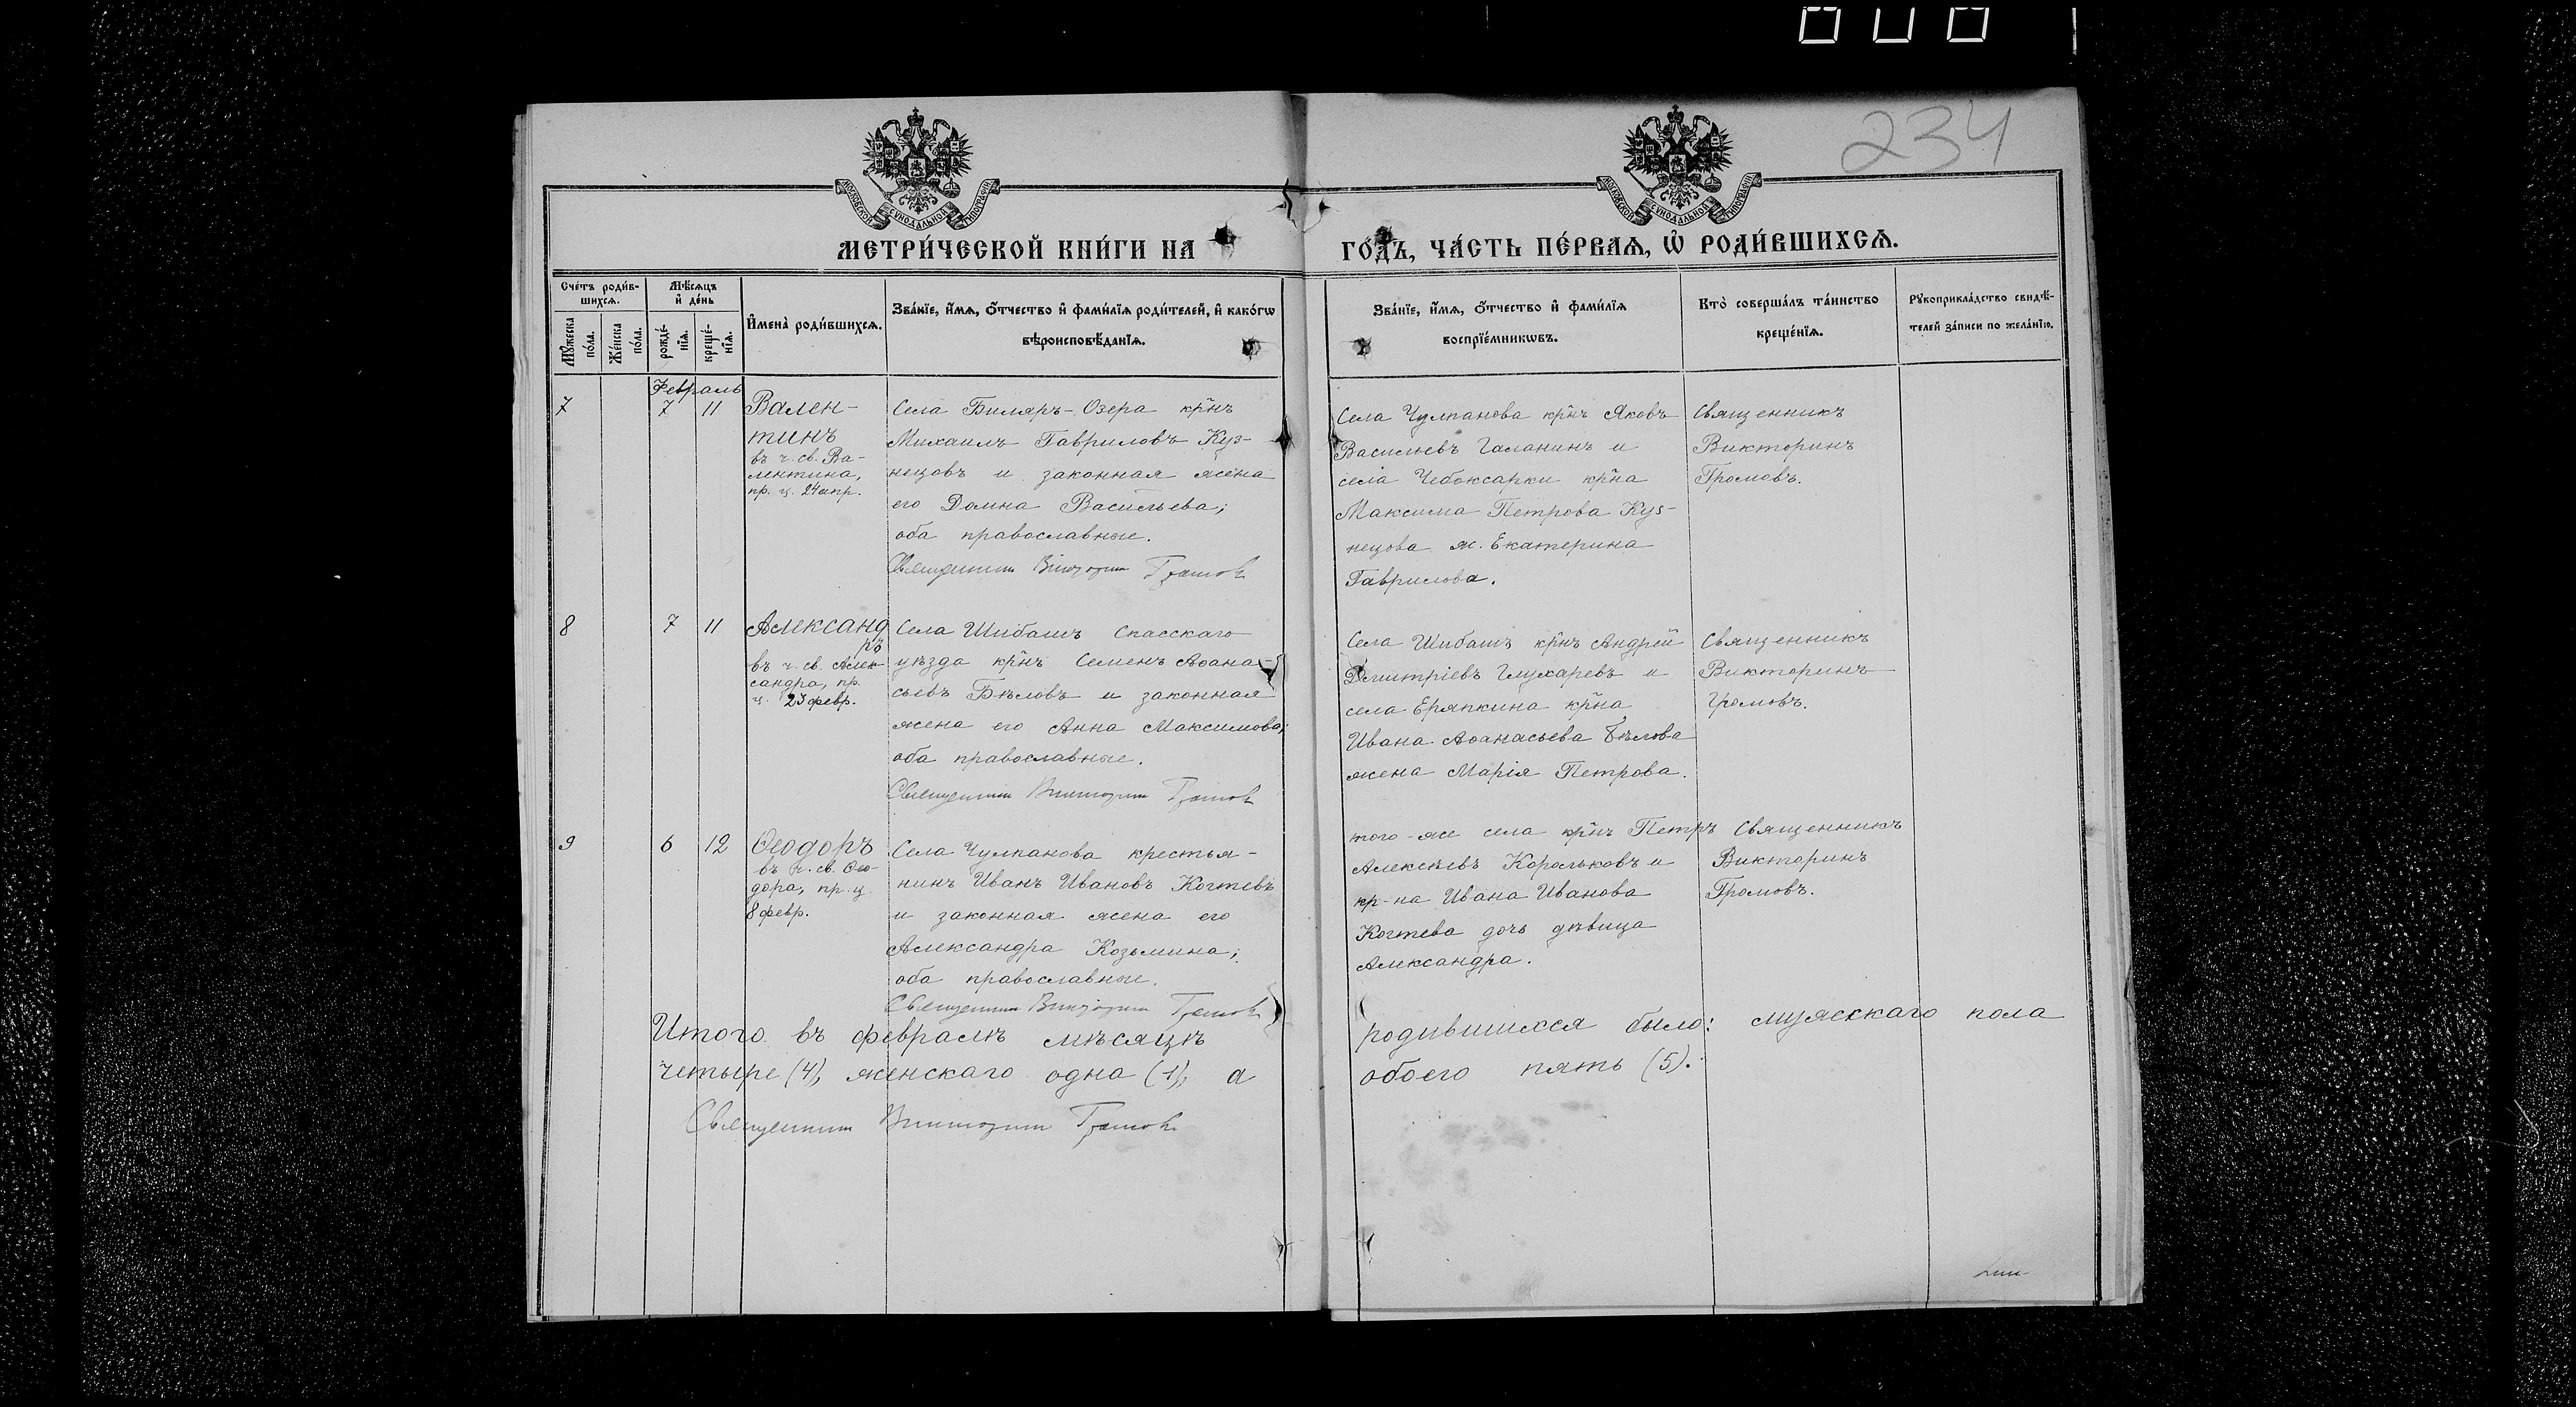 234
МОСКОВСКОЙ СУНОДАЛЬНОЙ ТИПОГРАФІИ
МОСКОВСКОЙ СУНОДАЛЬНОЙ ТИПОГРАФІИ
МЕТРИ́ЧЕСКОЙ КНИ́ГИ НА
ГО́ДЪ, ЧА́СТЬ ПЕ́РВАѦ, Ѽ РОДИ́ВШИХСѦ.
Сче́тъ роди́в-
шихсѧ.
Мꙋ́жеска
по́ла.
Же́нска
по́ла.
Мѣ́сѧцъ
и҆ де́нь
рожде́-
нїѧ.
креще́-
нїѧ.
И҆мена̀ роди́вшихсѧ.
Зва́нїе, и҆́мѧ, ѻ҆́тчество и҆ фами́лїѧ роди́телей, и҆ како́гѡ
вѣроисповѣ́данїѧ.
Зва́нїе, и҆́мѧ, ѻ҆́тчество и҆ фами́лїѧ
воспрїе́мникѡвъ.
Кто̀ соверша́лъ та́инство
креще́нїѧ.
Рꙋкоприкла́дство свидѣ́-
телей за́писи по жела́нїю.
Февраль
7
7
11
Вален-
тинъ
въ ч. св. Ва-
лентина,
пр. ц. 24 апр.
Села Биляръ-Озера кр̃нъ
Михаилъ Гавриловъ Куз-
нецовъ и законная жена
его Домна Васильева;
оба православные.
Священникъ Викторинъ Громовъ
Села Чулпанова кр̃нъ Яковъ
Васильевъ Галанинъ и
села Чебоксарки кр̃на
Максима Петрова Куз-
нецова ж. Екатерина
Гаврилова.
Священникъ
Викторинъ
Громовъ.
8
7
11
Александ
ръ
въ ч. св. Алек-
сандра, пр.
ц. 23 февр.
Села Шибашъ Спасскаго
уѣзда кр̃нъ Семенъ Аѳана-
сьевъ Бѣловъ и законная
жена его Анна Максимова;
оба православные.
Священникъ Викторинъ Громовъ
Села Шибашъ кр̃нъ Андрей
Димитріевъ Глухаревъ и
села Еряпкина кр̃на
Ивана Аѳанасьева Бѣлова
жена Марія Петрова.
Священникъ
Викторинъ
Громовъ.
9
6
12
Ѳеодоръ
въ ч. св. Ѳео-
дора, пр. ц.
8 февр.
Села Чулпанова крестья-
нинъ Иванъ Ивановъ Когтевъ
и законная жена его
Александра Козьмина;
оба православные.
Священникъ Викторинъ Громовъ
того-же села кр̃нъ Петръ
Алексѣевъ Корольковъ и
кр-на Ивана Иванова
Когтева дочь дѣвица
Александра.
Священникъ
Викторинъ
Громовъ.
Итого въ февралѣ мѣсяцѣ родившихся было: мужескаго пола
четыре (4), женскаго одна (1), а обоего пять (5).
Священникъ Викторинъ Громовъ